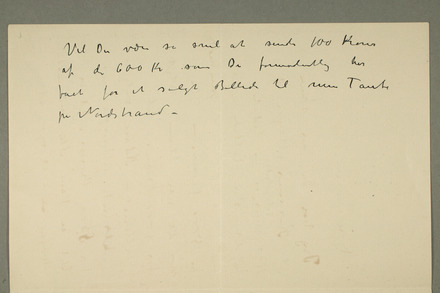 Vil Du være så snil at sende 100 Kroner
af de 600 Kr som Du formodentlig har
faaet for et solgt Billede til min Tante
på Nordstrand –